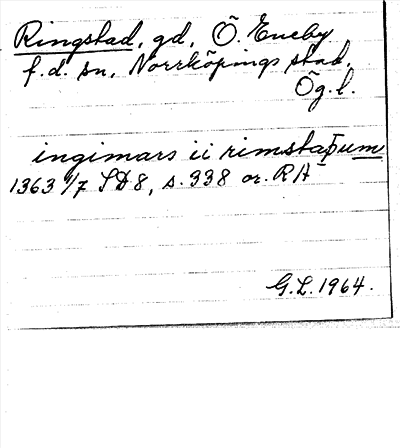 Ringstad, gd, Ö. Eneby
f.d. sn, Norrköpings stad,
Ög.l.
ingimars ii rimstaþum
1363 1/7 SD8, s. 338 or. RA
G.L. 1964.